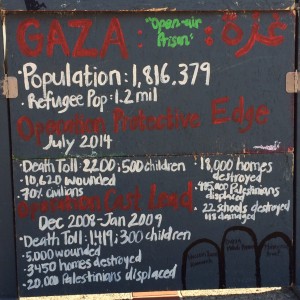 GAZA: غزة:
"Open-air Prison"
• Population: 1,816,379
• Refugee Pop: 1.2 mil
Operation Protective Edge
July 2014
• Death Toll: 2200; 500 children
• 10,620 wounded
• 70% civilians
• 18,000 homes destroyed
Palestinians displaced
• 22 schools destroyed
118 damaged
Operation Cast Lead
Dec 2008-Jan 2009
• Death Toll: 1,419; 300 children
• 5,000 wounded
• 3450 homes destroyed
• 20,000 Palestinians displaced